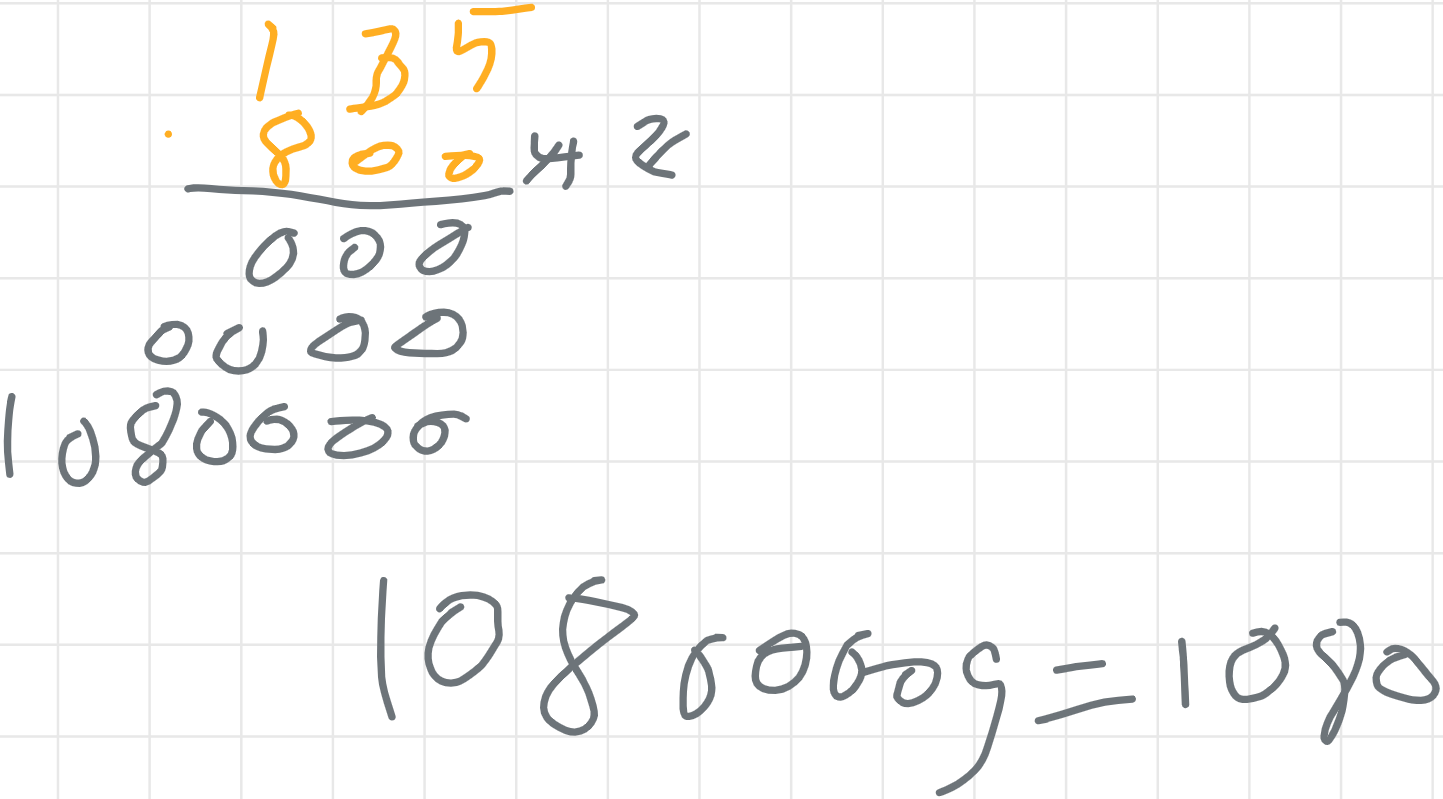 135
800
000
0000
1080000
1080000g=1080